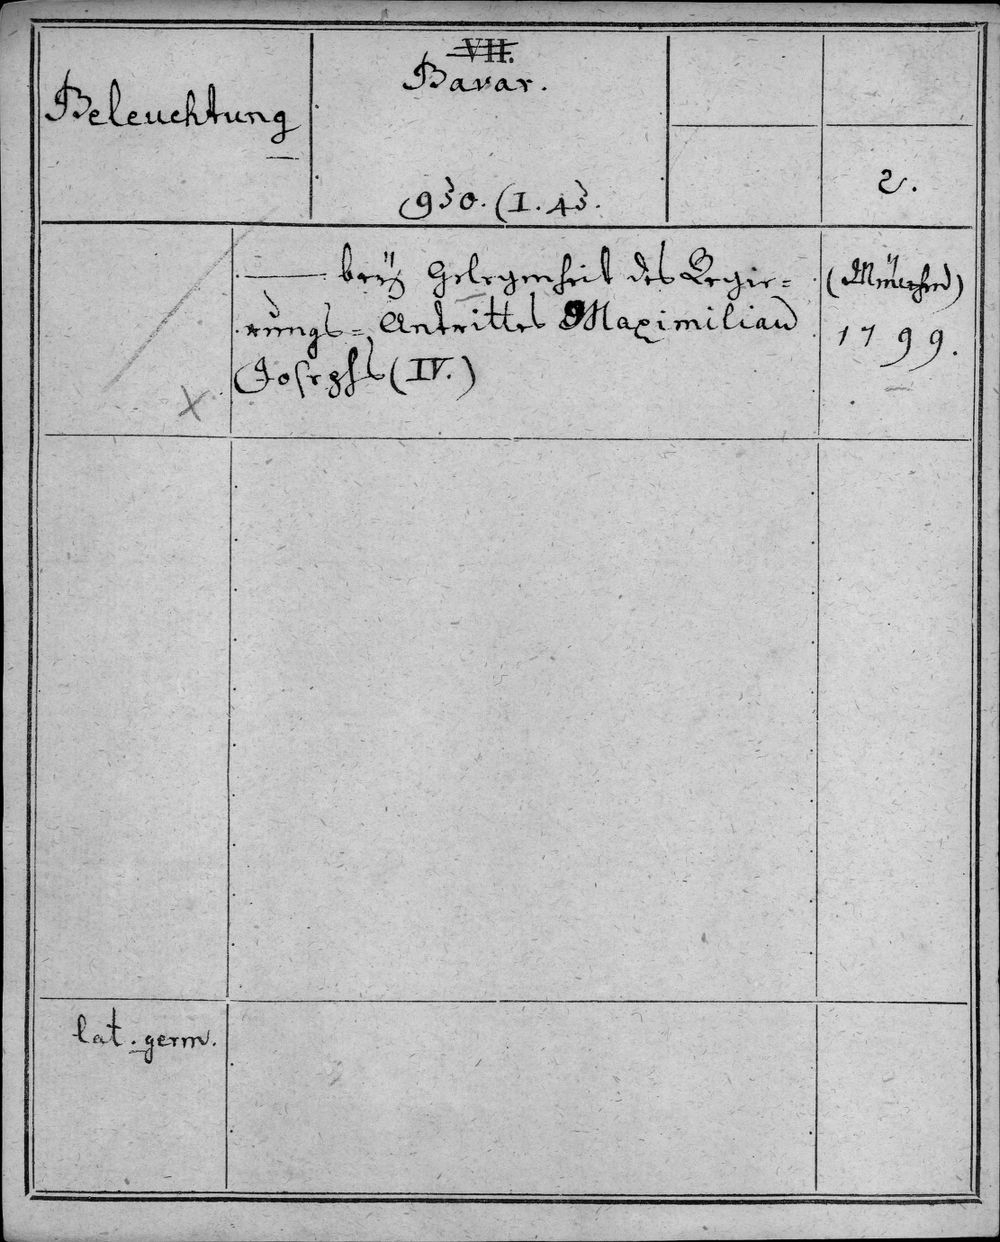 VII.
Beleuchtung
Bavar.
930. (I. 43.
2.
——— beÿ Gelegenheit des Regie=
rungs=Antrittes Maximilian
Josephs (IV.)
(München)
1799.
X
lat. germ.